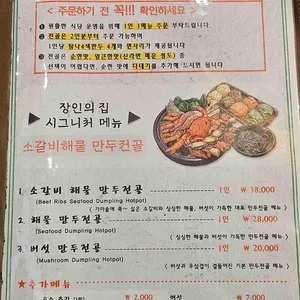 < 주문하기 전 꼭!!! 확인하세요 >
원활한 식당 운영을 위해 1인 1메뉴 주문 부탁드립니다.
전골은 2인분부터 주문 가능하며
1인당 만두 4개와 면사리가 제공됩니다
전골은 순한맛, 얼큰한맛 (신라면 매운 정도) 중
선택이 어렵다면, 순한 맛에 다대기를 추가해 드시면 됩니다
장인의 집
시그니처 메뉴
소갈비해물 만두전골
1. 소갈비 해물 만두전골 1인 ₩ 18,000
(Beef Ribs Seafood Dumpling Hotpot)
2. 해물 만두전골 1인 ₩ 28,000
(Seafood Dumpling Hotpot)
3. 버섯 만두전골 1인 ₩ 20,000
(Mushroom Dumpling Hotpot)
★추가메뉴
₩ 2,000 버섯 ₩ 7,000